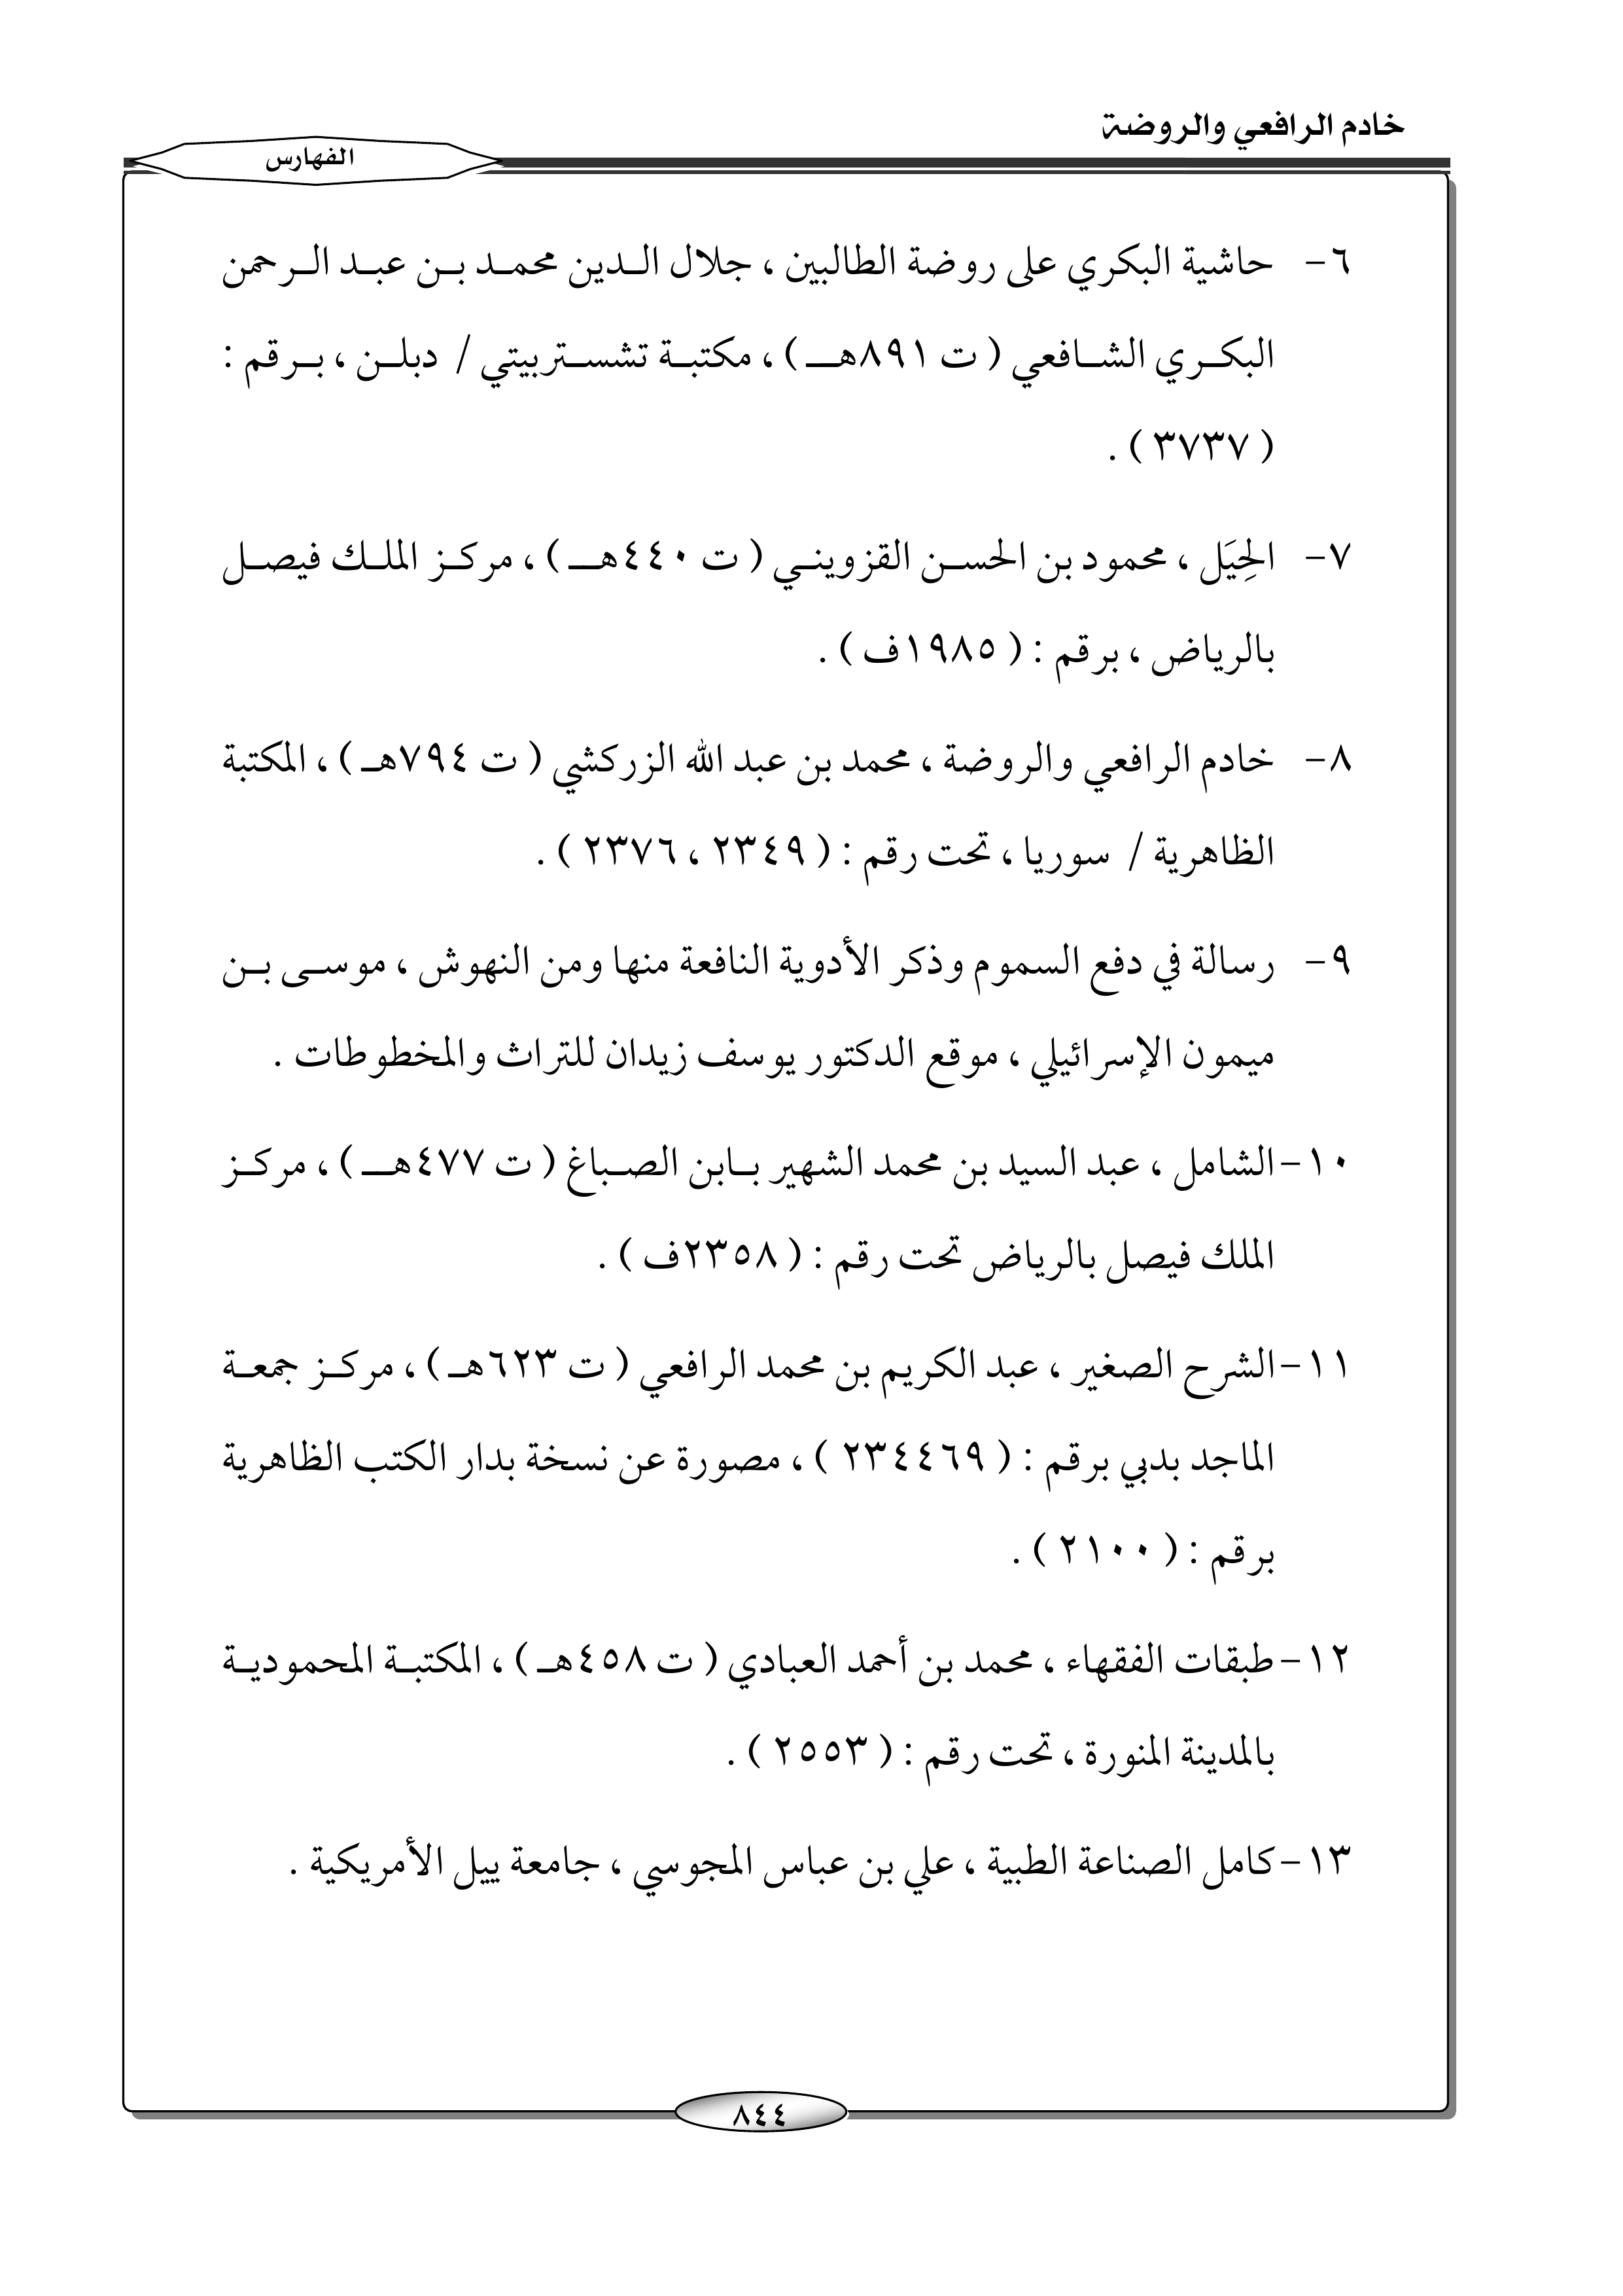 خادم الرافعي والروضة
الفهارس
٦- حاشية البكري على روضة الطالبين ، جلال الدين محمد بن عبد الرحمن
البكري الشافعي ( ت ٨٩١هـ ) ، مكتبة تشستربيتي / دبلن ، برقم :
( ٣٧٣٧ ) .
٧- الحِيَل ، محمود بن الحسن القزويني ( ت ٤٤٠هـ ) ، مركز الملك فيصل
بالرياض ، برقم : ( ١٩٨٥ف ) .
٨- خادم الرافعي والروضة ، محمد بن عبد الله الزركشي ( ت ٧٩٤هـ ) ، المكتبة
الظاهرية / سوريا ، تحت رقم : ( ٢٣٤٩ ، ٢٣٧٦ ) .
٩- رسالة في دفع السموم وذكر الأدوية النافعة منها ومن النهوش ، موسى بن
ميمون الإسرائيلي ، موقع الدكتور يوسف زيدان للتراث والمخطوطات .
١٠- الشامل ، عبد السيد بن محمد الشهير بابن الصباغ ( ت ٤٧٧هـ ) ، مركز
الملك فيصل بالرياض تحت رقم : ( ٢٣٥٨ف ) .
١١- الشرح الصغير ، عبد الكريم بن محمد الرافعي ( ت ٦٢٣هـ ) ، مركز جمعة
الماجد بدبي برقم : ( ٢٣٤٤٦٩ ) ، مصورة عن نسخة بدار الكتب الظاهرية
برقم : ( ٢١٠٠ ) .
١٢- طبقات الفقهاء ، محمد بن أحمد العبادي ( ت ٤٥٨هـ ) ، المكتبة المحمودية
بالمدينة المنورة ، تحت رقم : ( ٢٥٥٣ ) .
١٣- كامل الصناعة الطبية ، علي بن عباس المجوسي ، جامعة ييل الأمريكية .
٨٤٤